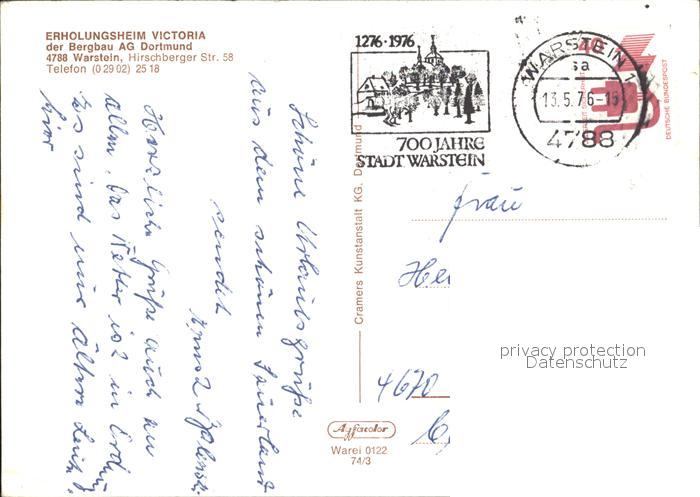 ERHOLUNGSHEIM VICTORIA
der Bergbau AG Dortmund
4788 Warstein, Hirschberger Str. 58
Telefon (0 29 02) 25 18
1276 · 1976
700 JAHRE
STADT WARSTEIN
WARSTEIN 1
sa
13.5.76-15
4788
40
DEUTSCHE BUNDESPOST
Schöne Urlaubsgrüße
aus dem schönen Sauerland
sendet
Herzliche Grüße auch an
allen. Das Wetter ist in Ordn
Es sind nur ältere Leute
hier
Cramers Kunstanstalt KG. Dortmund
Frau
He
4670
privacy protection
Datenschutz
Agfacolor
Warei 0122
74/3